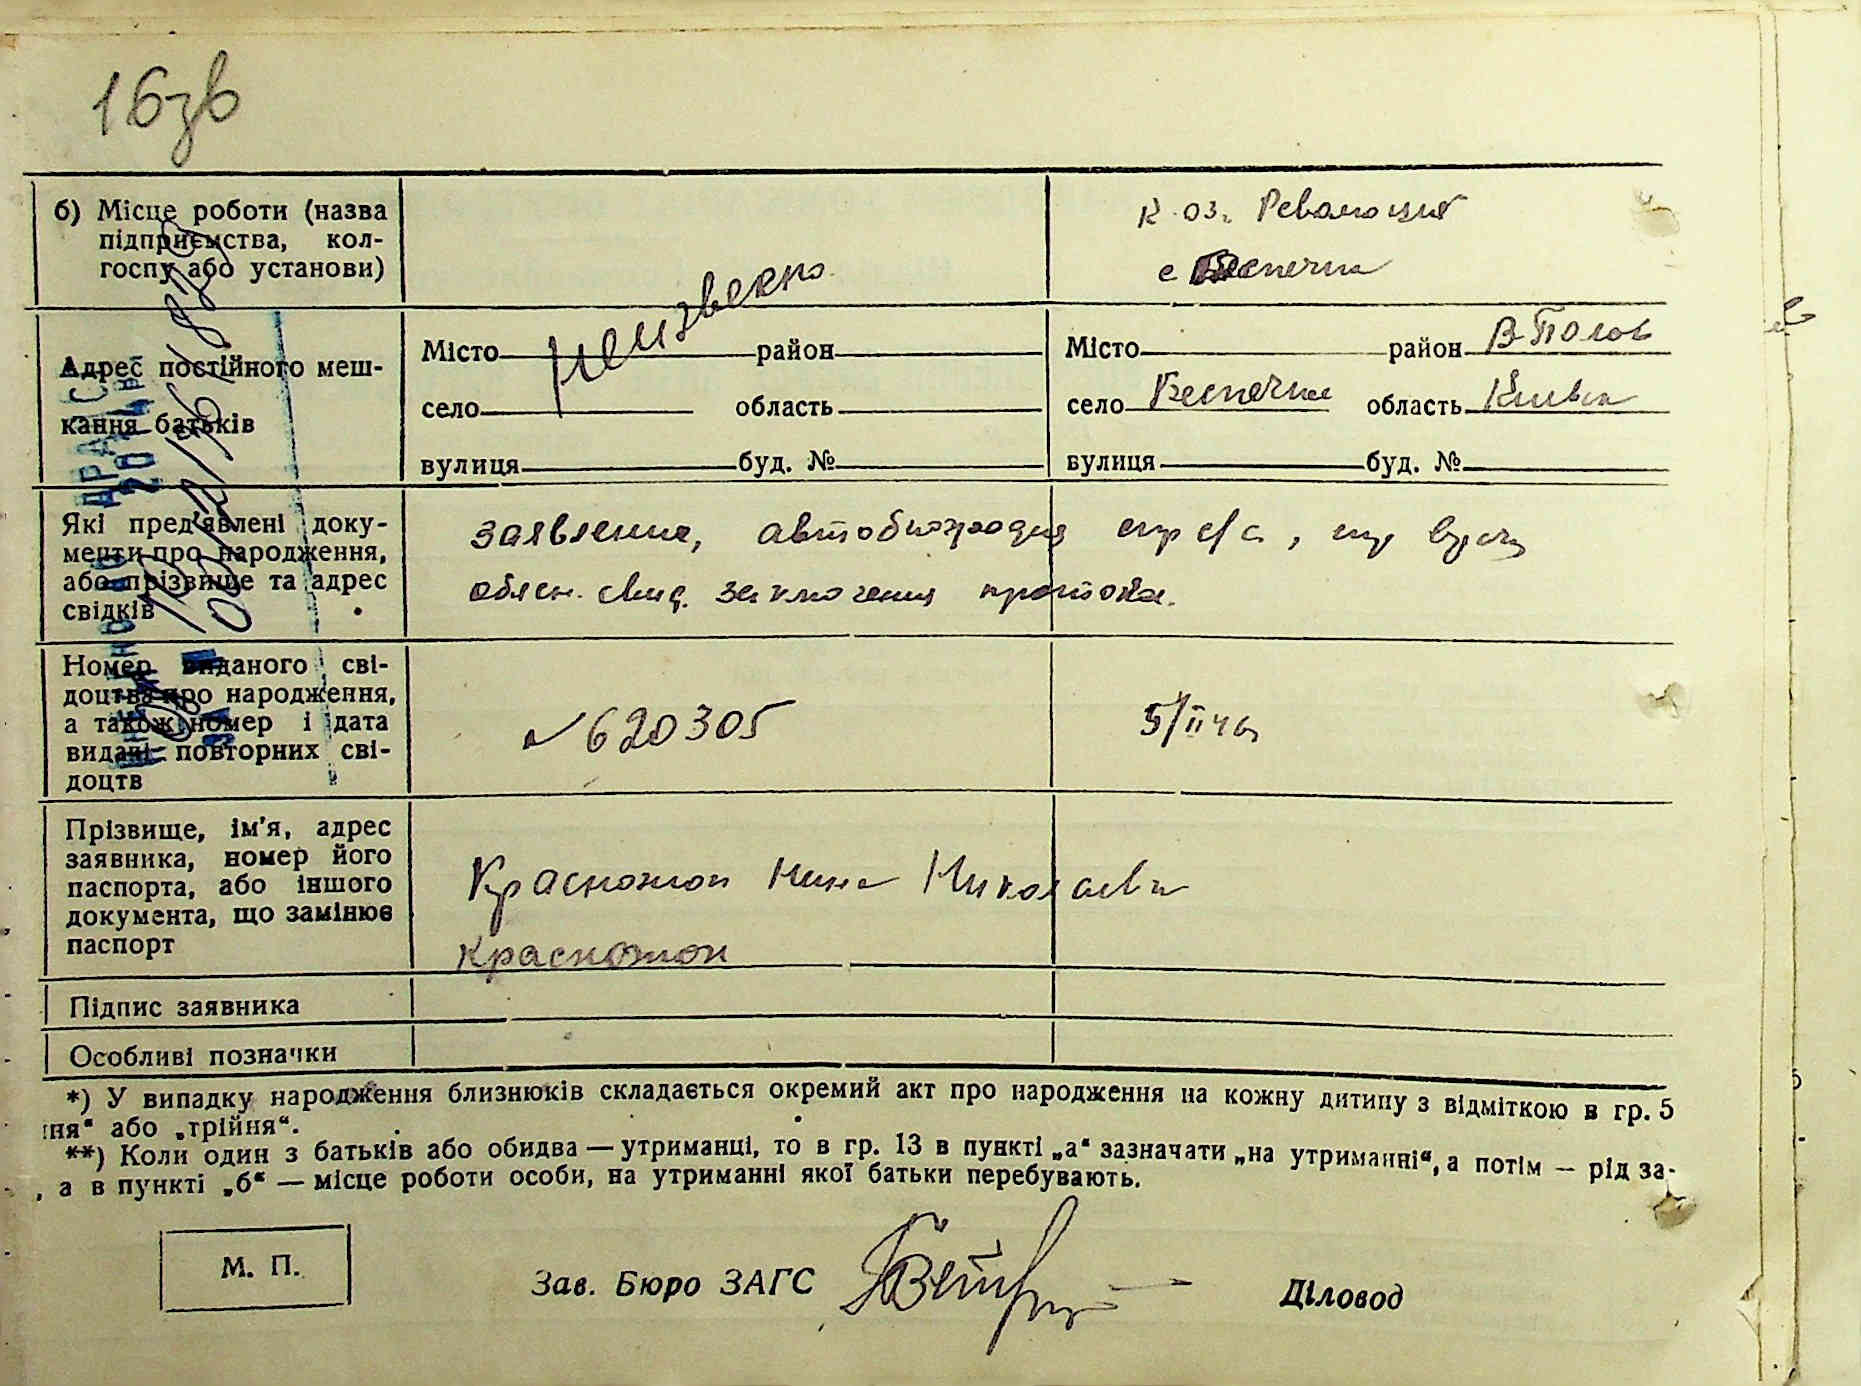 16зв
б) Місце роботи (назва
підприємства, кол-
госпу або установи)
к оз. Революция
с Беспечна
Адрес постійного меш-
кання батьків
неизвесно
Місто район
село область
вулиця буд. №
Місто район В-Полов
село Беспечна область Киевск
вулиця буд. №
Які пред'явлені доку-
менти про народження,
або прізвище та адрес
свідків
заявление, автобиография спр с/с, спр врач
обясн. свид. заключения протока.
Номер виданого сві-
доцтва про народження,
а також номер і дата
видачі повторних сві-
доцтв
№ 620305
5/II 46
Прізвище, ім'я, адрес
заявника, номер його
паспорта, або іншого
документа, що замінює
паспорт
Красножон Нина Николаевн
Красножон
Підпис заявника
Особливі позначки
*) У випадку народження близнюків складається окремий акт про народження на кожну дитину з відміткою в гр. 5
ня“ або „трійня“.
**) Коли один з батьків або обидва — утриманці, то в гр. 13 в пункті „а“ зазначати „на утриманні“, а потім — рід за-
, а в пункті „б“ — місце роботи особи, на утриманні якої батьки перебувають.
М. П.
Зав. Бюро ЗАГС
Діловод